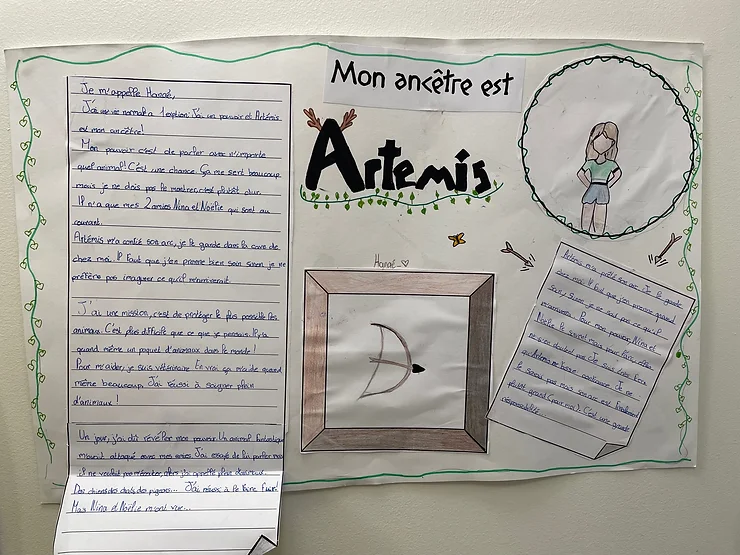 Mon ancêtre est
Artemis
Je m'appelle Hanaé,
J'ai une vie normal a 1 exeption: J'ai un pouvoir et Artémis
est mon ancêtre!
Mon pouvoir c'est de parler avec n'importe
quel animal! C'est une chance. Ça me sert beaucoup
mais je ne dois pas le montrer, c'est plutôt dur.
Il n'a que mes 2 amies Nina et Noélie qui sont au
courant.
Artémis m'a confié son arc, je le garde dans la cave de
chez moi. Il faut que j'en prenne bien soin sinon je ne
préfère pas imaginer ce qu'il m'arriverait.
J'ai une mission, c'est de protéger le plus possible les
animaux. C'est plus difficile que ce que je pensais. Il y a
quand même un paquet d'animaux dans le monde!
Pour m'aider, je suis vétérinaire. En vrai ça m'aide quand
même beaucoup. J'ai réussi à soigner plein
d'animaux!
Un jour, j'ai dû révéler mon pouvoir. Un animal fantastique
m'avait attaqué avec mes amies. J'ai essayé de lui parler mais
il ne voulait pas m'écouter, alors j'ai plus d'animaux.
Des chiens, des chats, des pigeons... J'ai réussi à le faire fuir!
Mais Nina et Noélie m'ont vue...
Hanaé ♡
Artémis m'a prêté son arc. Je le garde
chez moi. Il faut que j'en prenne grand
soin, sinon je ne sais pas ce qu'il
m'arrivera. Pour mon pouvoir, Nina et
Noélie le savent mais
qu'Artémis me fasse confiance. Je ne
le savais pas mais son arc est finalement
plutôt grand (pour moi). C'est une grande
responsabilité.